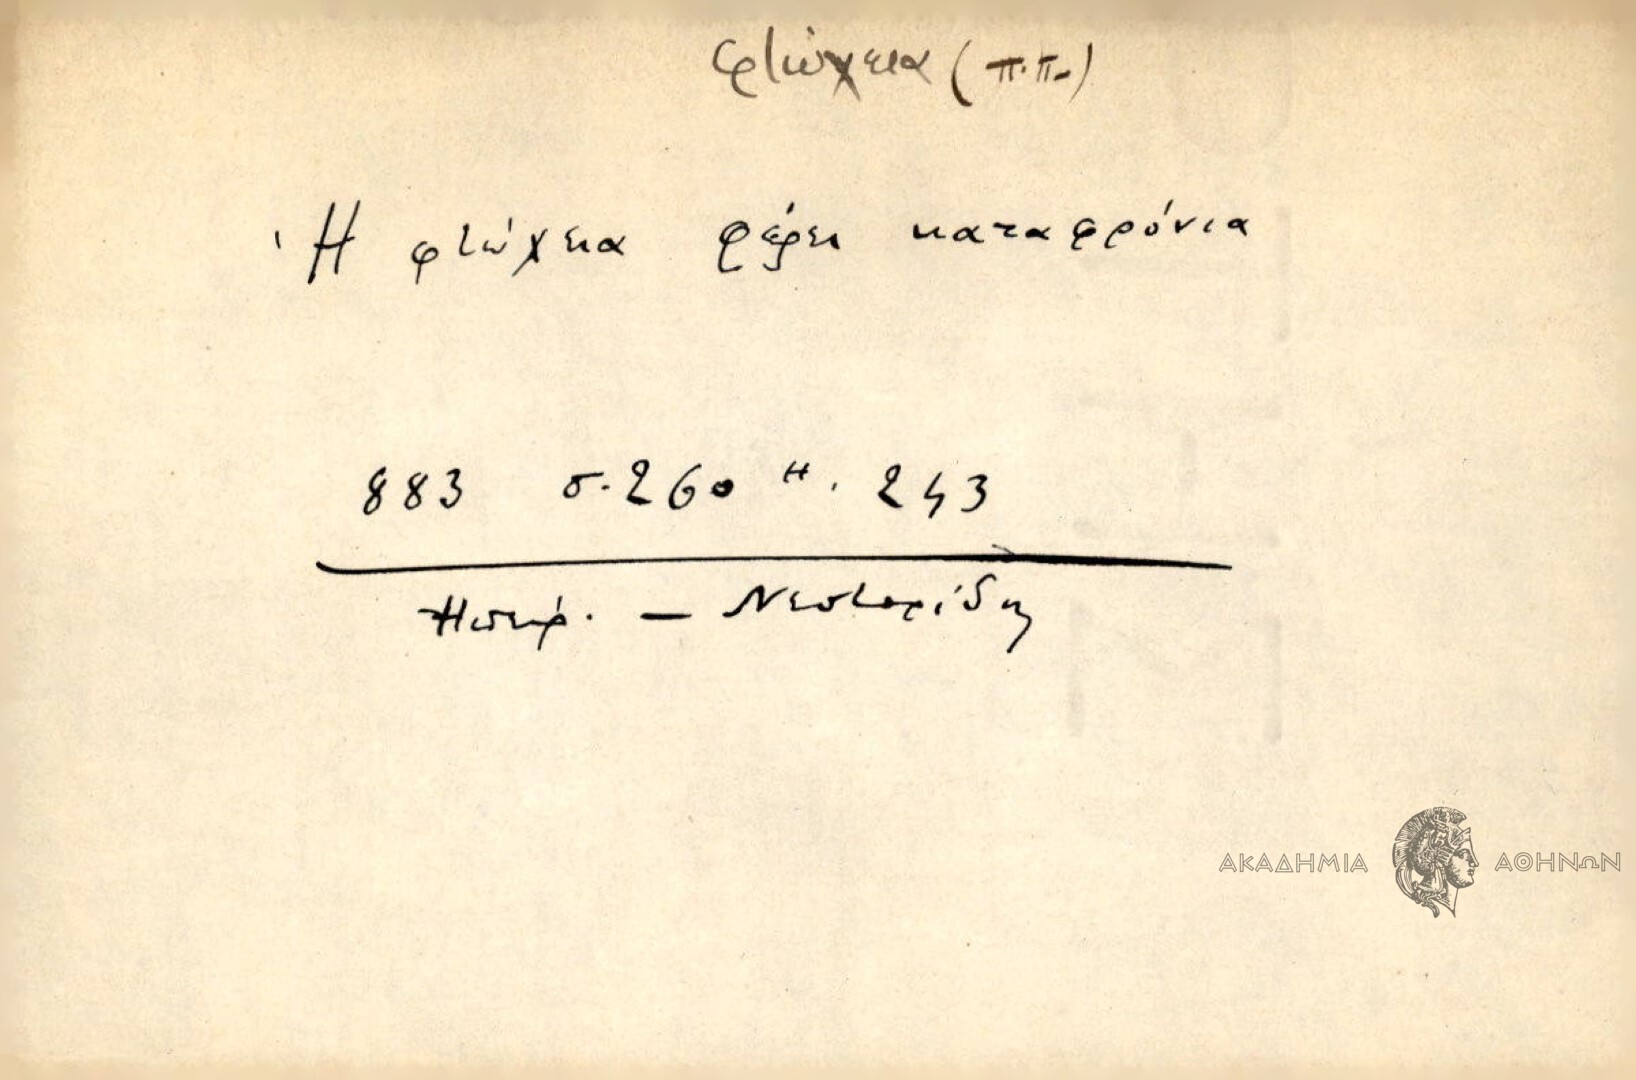 φτώχεια (π.π.)
Ἡ φτώχεια φέρει καταφρόνια
883 σ. 260 243
Ηπειρ. — Νεστορίδη
ΑΚΑΔΗΜΙΑ ΑΘΗΝΩΝ